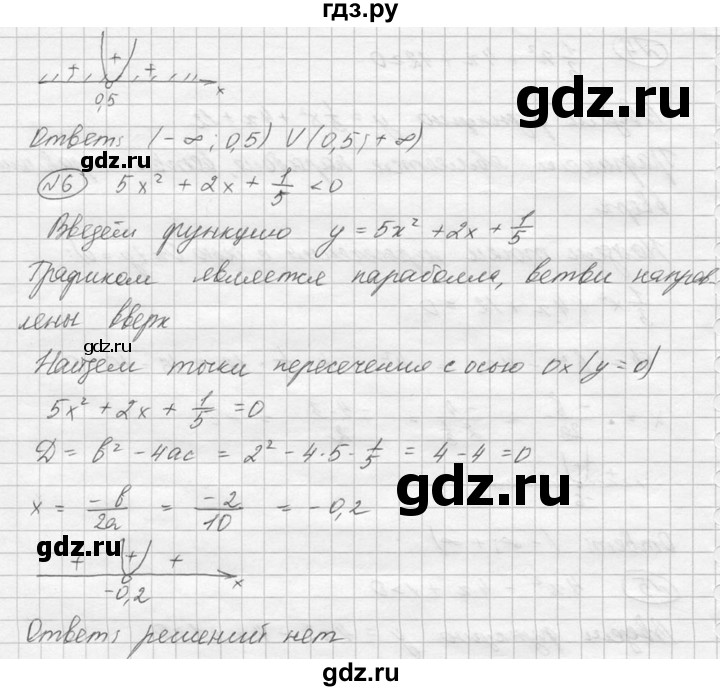 гдз.ру
+ +
0,5 x
Ответ: (-∞; 0,5) ∪ (0,5; +∞)
№6 5x² + 2x + 1/5 < 0
gdz.ru
Введём функцию y = 5x² + 2x + 1/5
Графиком является параболла, ветви направ-
лены вверх
gdz.ru
Найдем точки пересечения с осью Ox (y = 0)
5x² + 2x + 1/5 = 0
D = b² - 4ac = 2² - 4·5·1/5 = 4 - 4 = 0
gdz.ru
x = -b/2a = -2/10 = -0,2
+ + +
-0,2 x
gdz.ru
Ответ: решений нет
gdz.ru